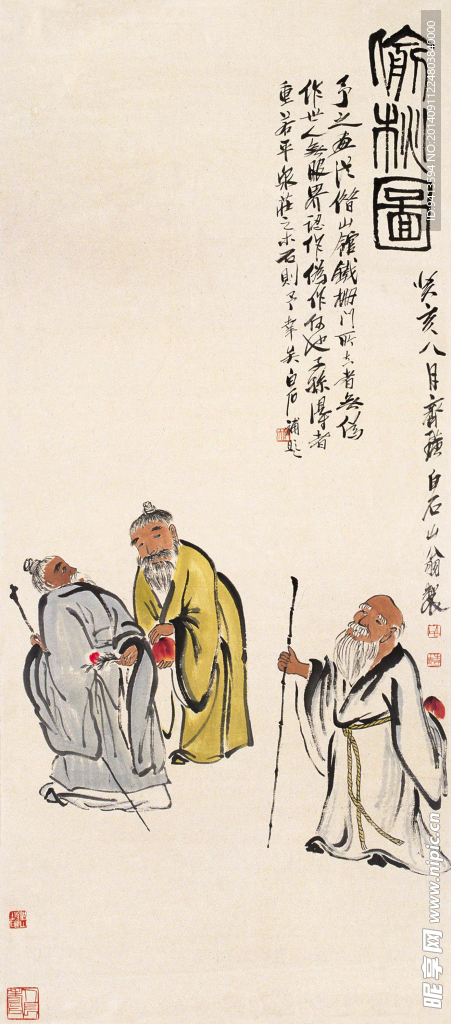 偷桃圖
癸亥八月齊璜白石山翁製
予之畫從借山館鐵柵門所去者無偽
作世人無眼界認作偽作何也子孫得者
重若平泉莊之木石則予幸矣白石補題
ID:9413594 NO:20140911224803840000
昵享网 www.nipic.cn